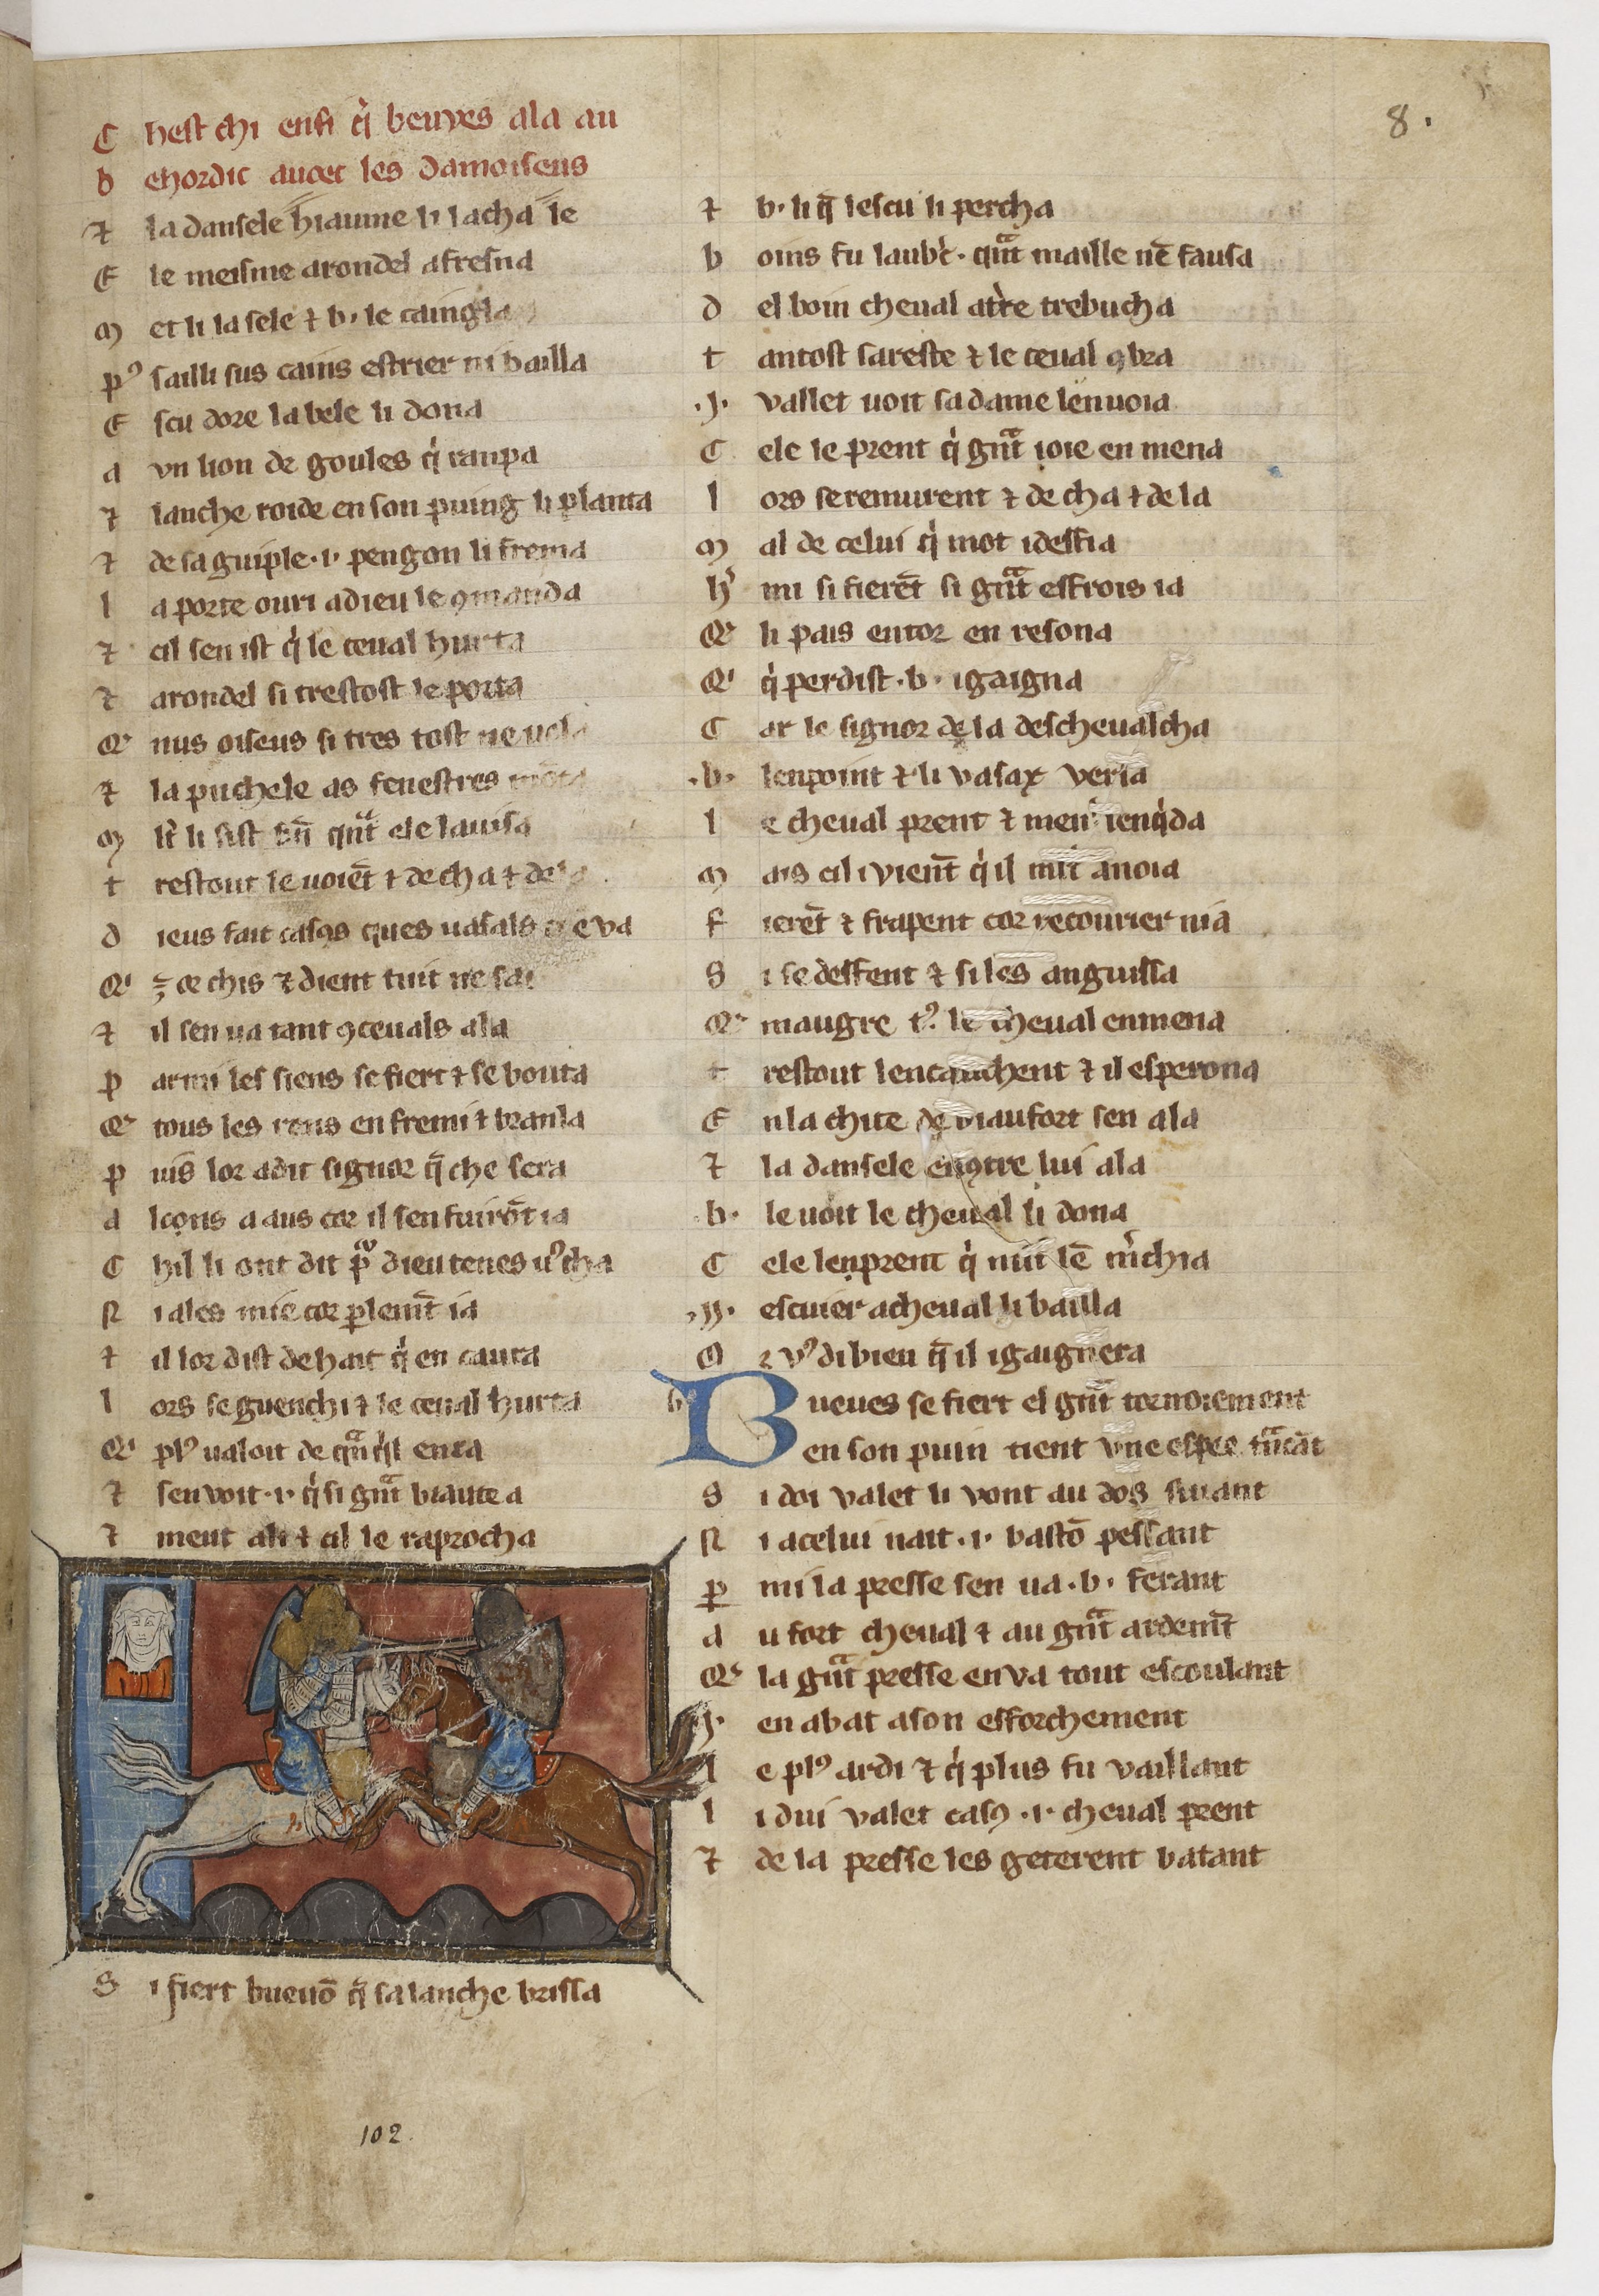 8.
C hest chi ensi q̉ beuves ala au
b ehordic auoec les damoiseus
⁊ la dansele hiaume li lacha le
E le meisme arondel afresna
M et li la sele ⁊ b. le caingla
pꝰ sailli sus cains estrier ni bailla
E scu dore la bele li dona
a vn lion de goules q̉ ranpa
⁊ lanche roide en son puing li planta
⁊ de sa guiple .i. pengon li frema
l a porte ouri a dieu le ꝯmanda
⁊ cil sen ist q̉ le ceual hurta
⁊ arondel si trestost le porta
Q nus oiseus si tres tost ne uola
⁊ la puchele as fenestres
M lt̉ li sist quᵃt ele lauisa
t restout le uoiēt ⁊ de cha ⁊ de
d ieus fait casꝯs ques uasals va
Q chis ⁊ dient tuit ne sai
⁊ il sen ua tant ꝯ ceuals ala
p armi les siens se fiert ⁊ se bouta
Q tous les rens en fremi ⁊ branla
p uis lor a dit signor q̄ che sera
a lcons a aus cor il sen fuirōt ia
C hil li ont dit dieu tenes uꝰ cha
N i ales mie cor plenīt ia
⁊ il lor dist dehait q̉ en caura
l ors se guenchi ⁊ le ceual hurta
Q plꝰ ualoit de q̉l enca
⁊ seu voit .i. q̉ si gᵃnt biaute a
⁊ ment a li ⁊ cil le raprocha
S i fiert bueuō q̄ sa lanche brissa
⁊ b. li q̄ lescu li percha
b oins fu laub̉c. quᵃt maille nē fausa
d el boin cheual at̉re trebucha
t antost sareste ⁊ le ceual ꝯbra
.j. vallet uoit sa dame lenuoia
C ele le prent q̉ gᵃnt ioie en mena
l ors se remurent ⁊ de cha ⁊ de la
M al de celui q̉ mot i deffia
mi si fierēt si gᵃnt esfrois ia
Q li pais entor en resona
Q q̉ perdist .b. i gaigna
C ar le signor de la descheualcha
.b. lenpoint ⁊ li vasax versa
l e cheual prent ⁊ mener len q̉da
M ais cil i vienēt q̉ il mlt anoia
F ierēt ⁊ frapent cor recourier nia
S i se deffent ⁊ si les anguissa
Q maugre tꝰ le cheual enmena
t restout lencauchent ⁊ il esperona
E n la chite de biaufort sen ala
⁊ la dansele enꝯtre lui ala
b. le uoit le cheual li dona
C ele lenprent q̉ mlt lē m̉chia
.ij. escuier a cheual li bailla
O r vꝰ di bien q̄ il i gaignera
B ueues se fiert el gᵃnt tornoiement
en son puin tient vne espee tᵃncāt
S i doi valet li vont au dos siuant
N i a celui nait .i. bastō pessant
p mi la presse sen ua .b. ferant
a u fort cheual ⁊ au gᵃnt ardemt̄
Q la gᵃnt presse en va tout escoulant
.j. en abat a son efforchement
l e plꝰ ardi ⁊ q̉ plus fu vaillant
l i dui valet casꝯ .i. cheual prent
⁊ de la presse les geterent batant
102